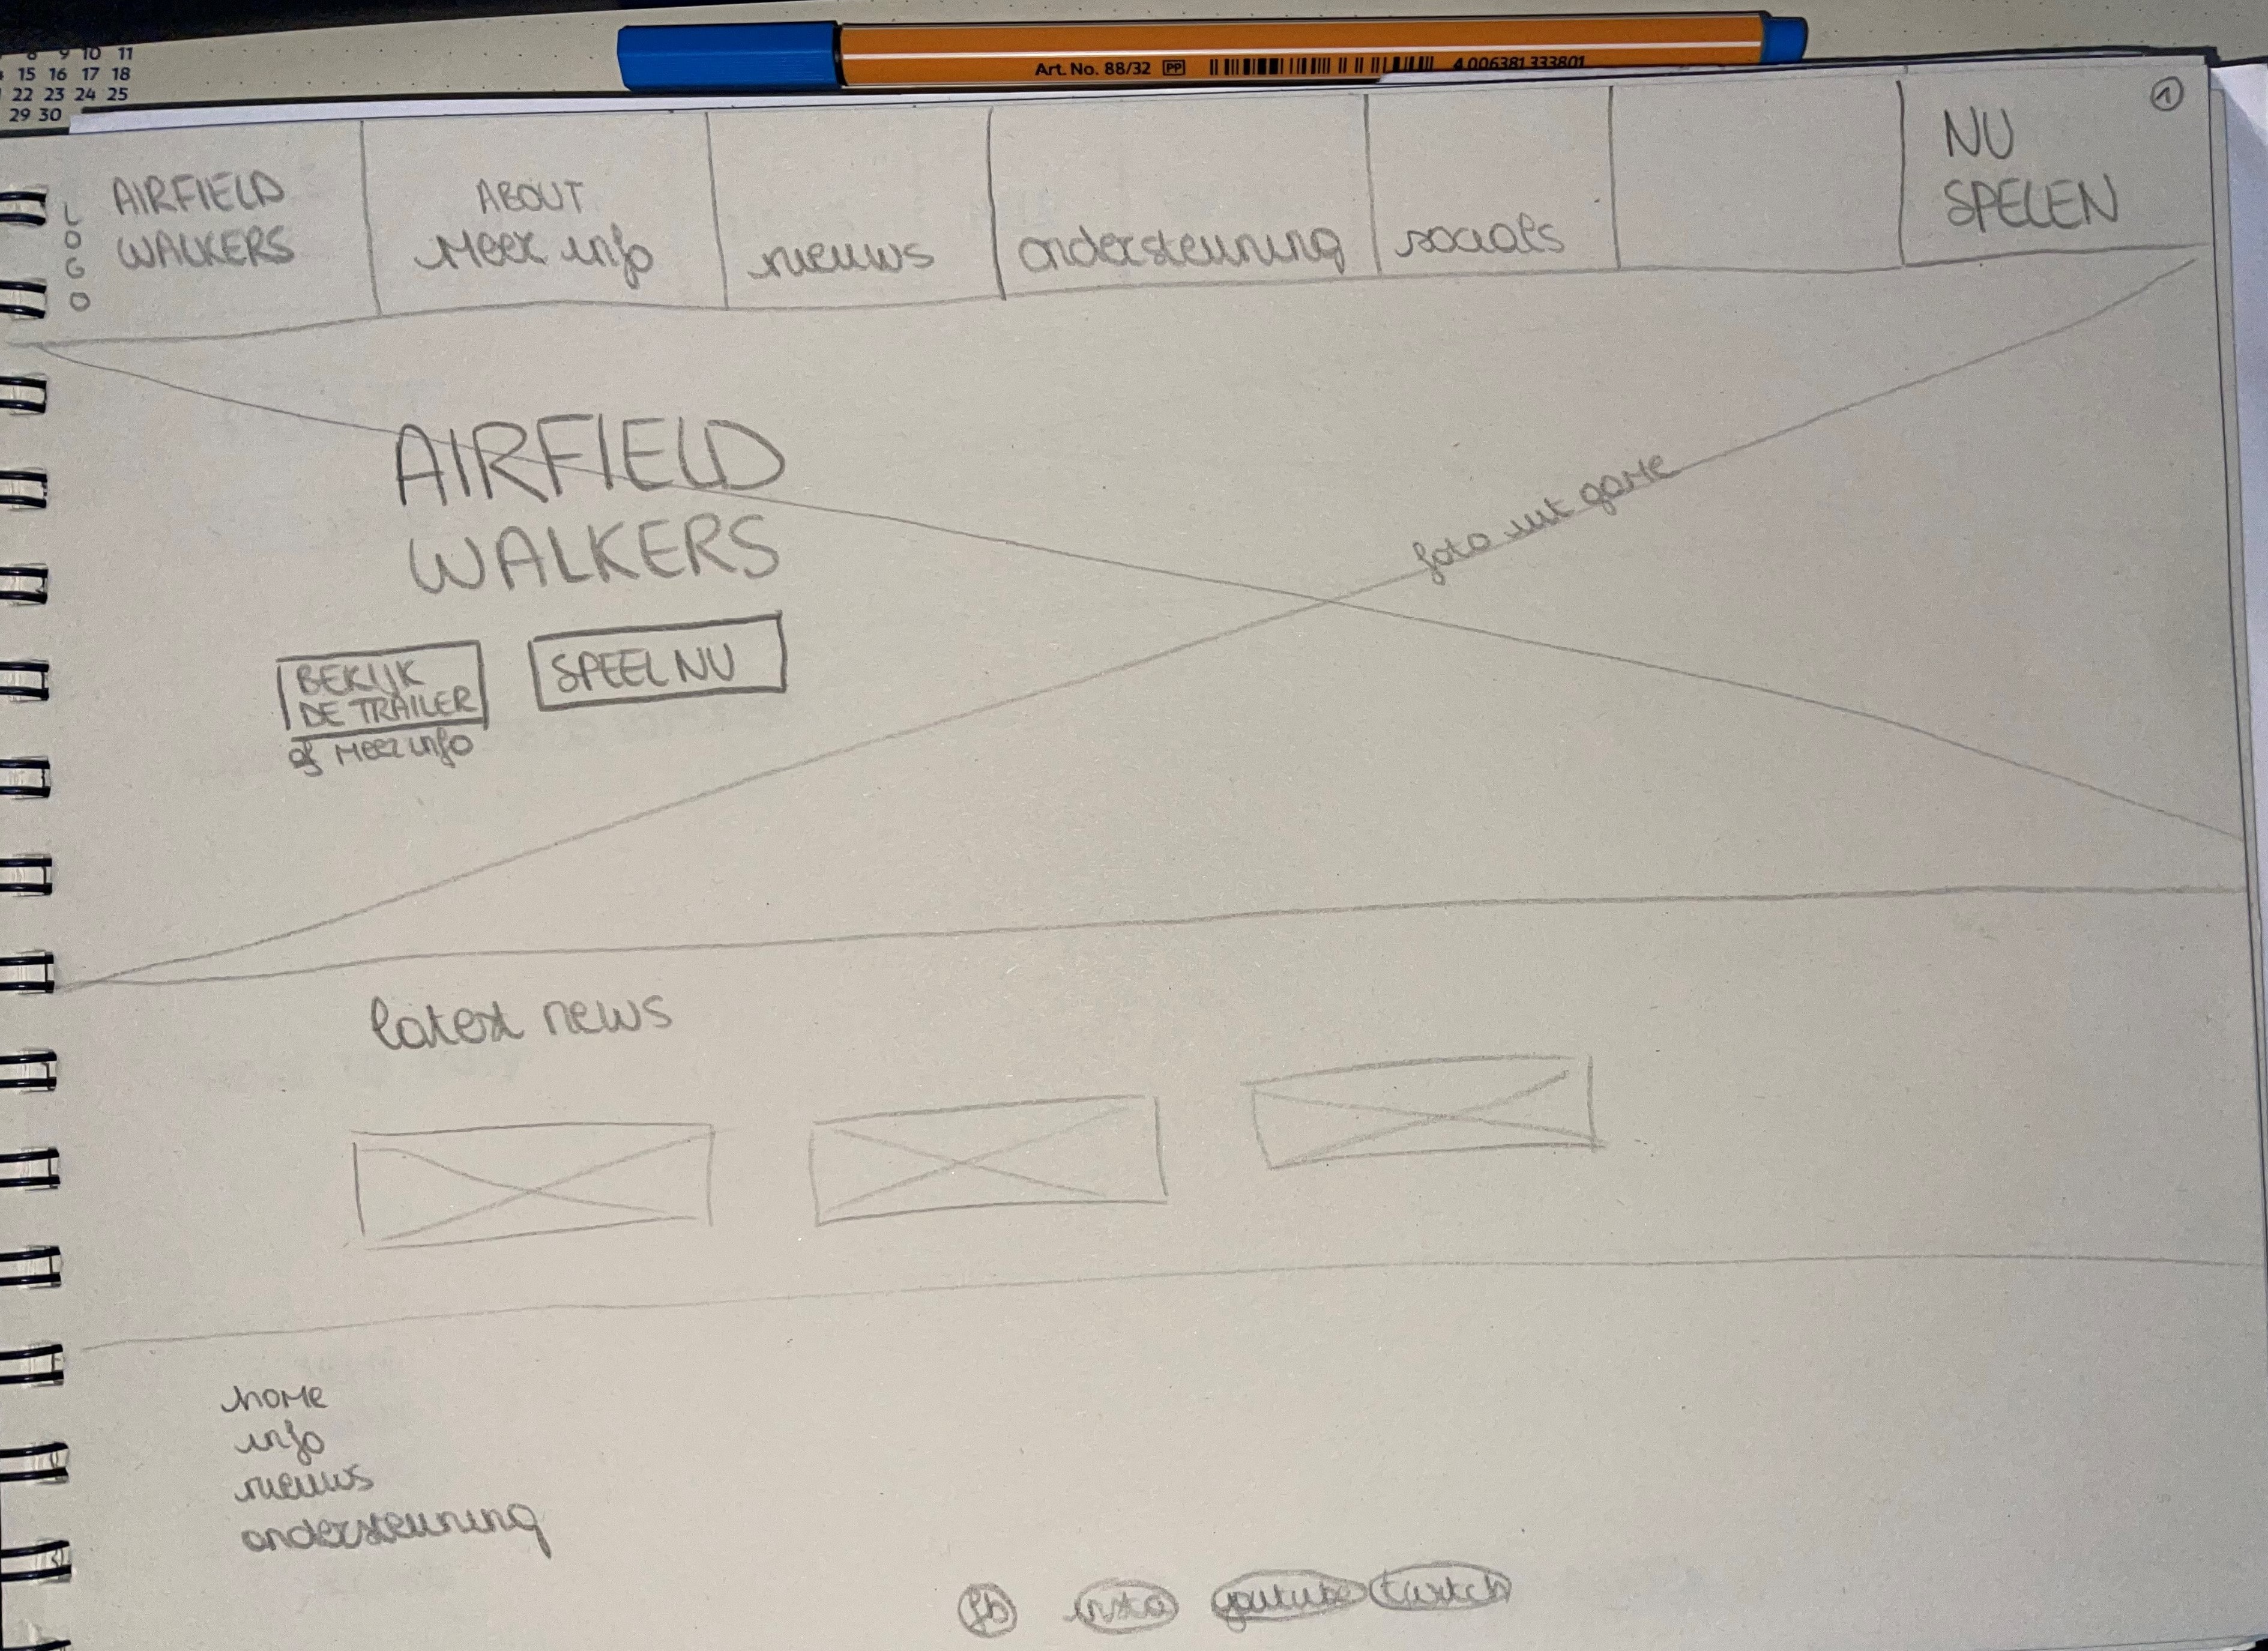 8 9 10 11
15 16 17 18
22 23 24 25
29 30
Art. No. 88/32 PP 4 006381 333801
1
LOGO
AIRFIELD
WALKERS
ABOUT
Meer info
nieuws
ondersteuning
socials
NU
SPELEN
AIRFIELD
WALKERS
foto uit game
BEKIJK
DE TRAILER
of Meer info
SPEEL NU
latest news
home
info
nieuws
ondersteuning
fb insta youtube twitch